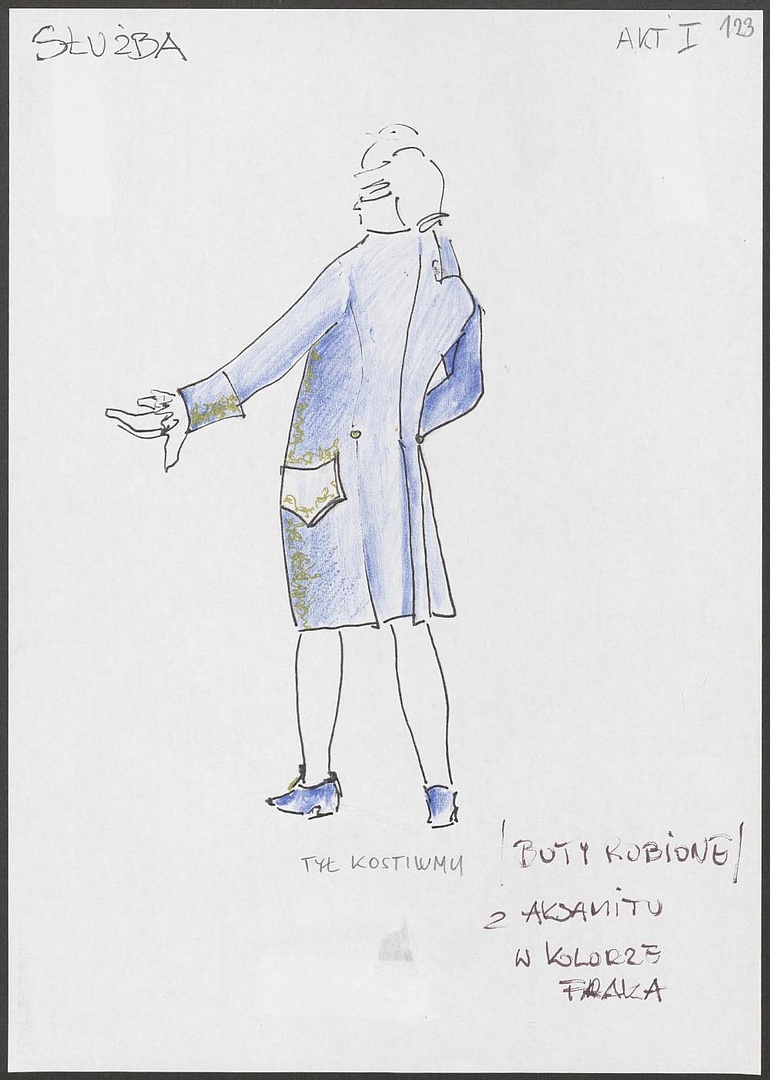 SŁUŻBA
AKT I 123
TYŁ KOSTIUMU
/BUTY ROBIONE/
Z AKSAMITU
W KOLORZE
FRAKA